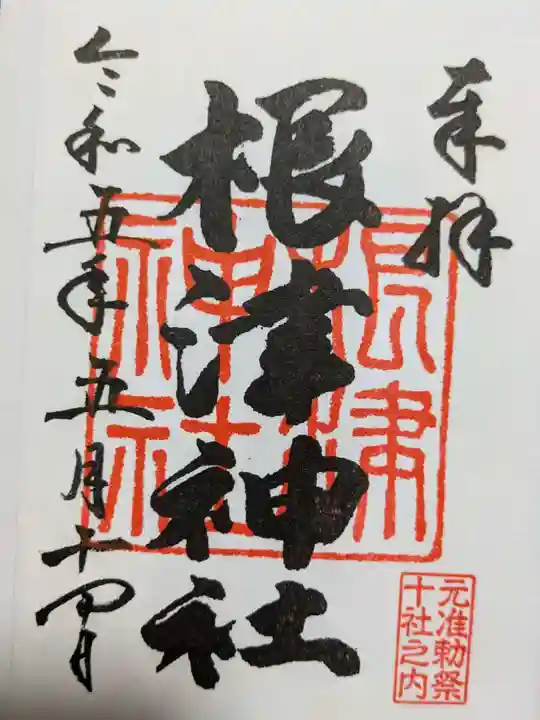 奉拝
根津神社
令和五年五月十四日
根津
神社
元准勅祭
十社之内